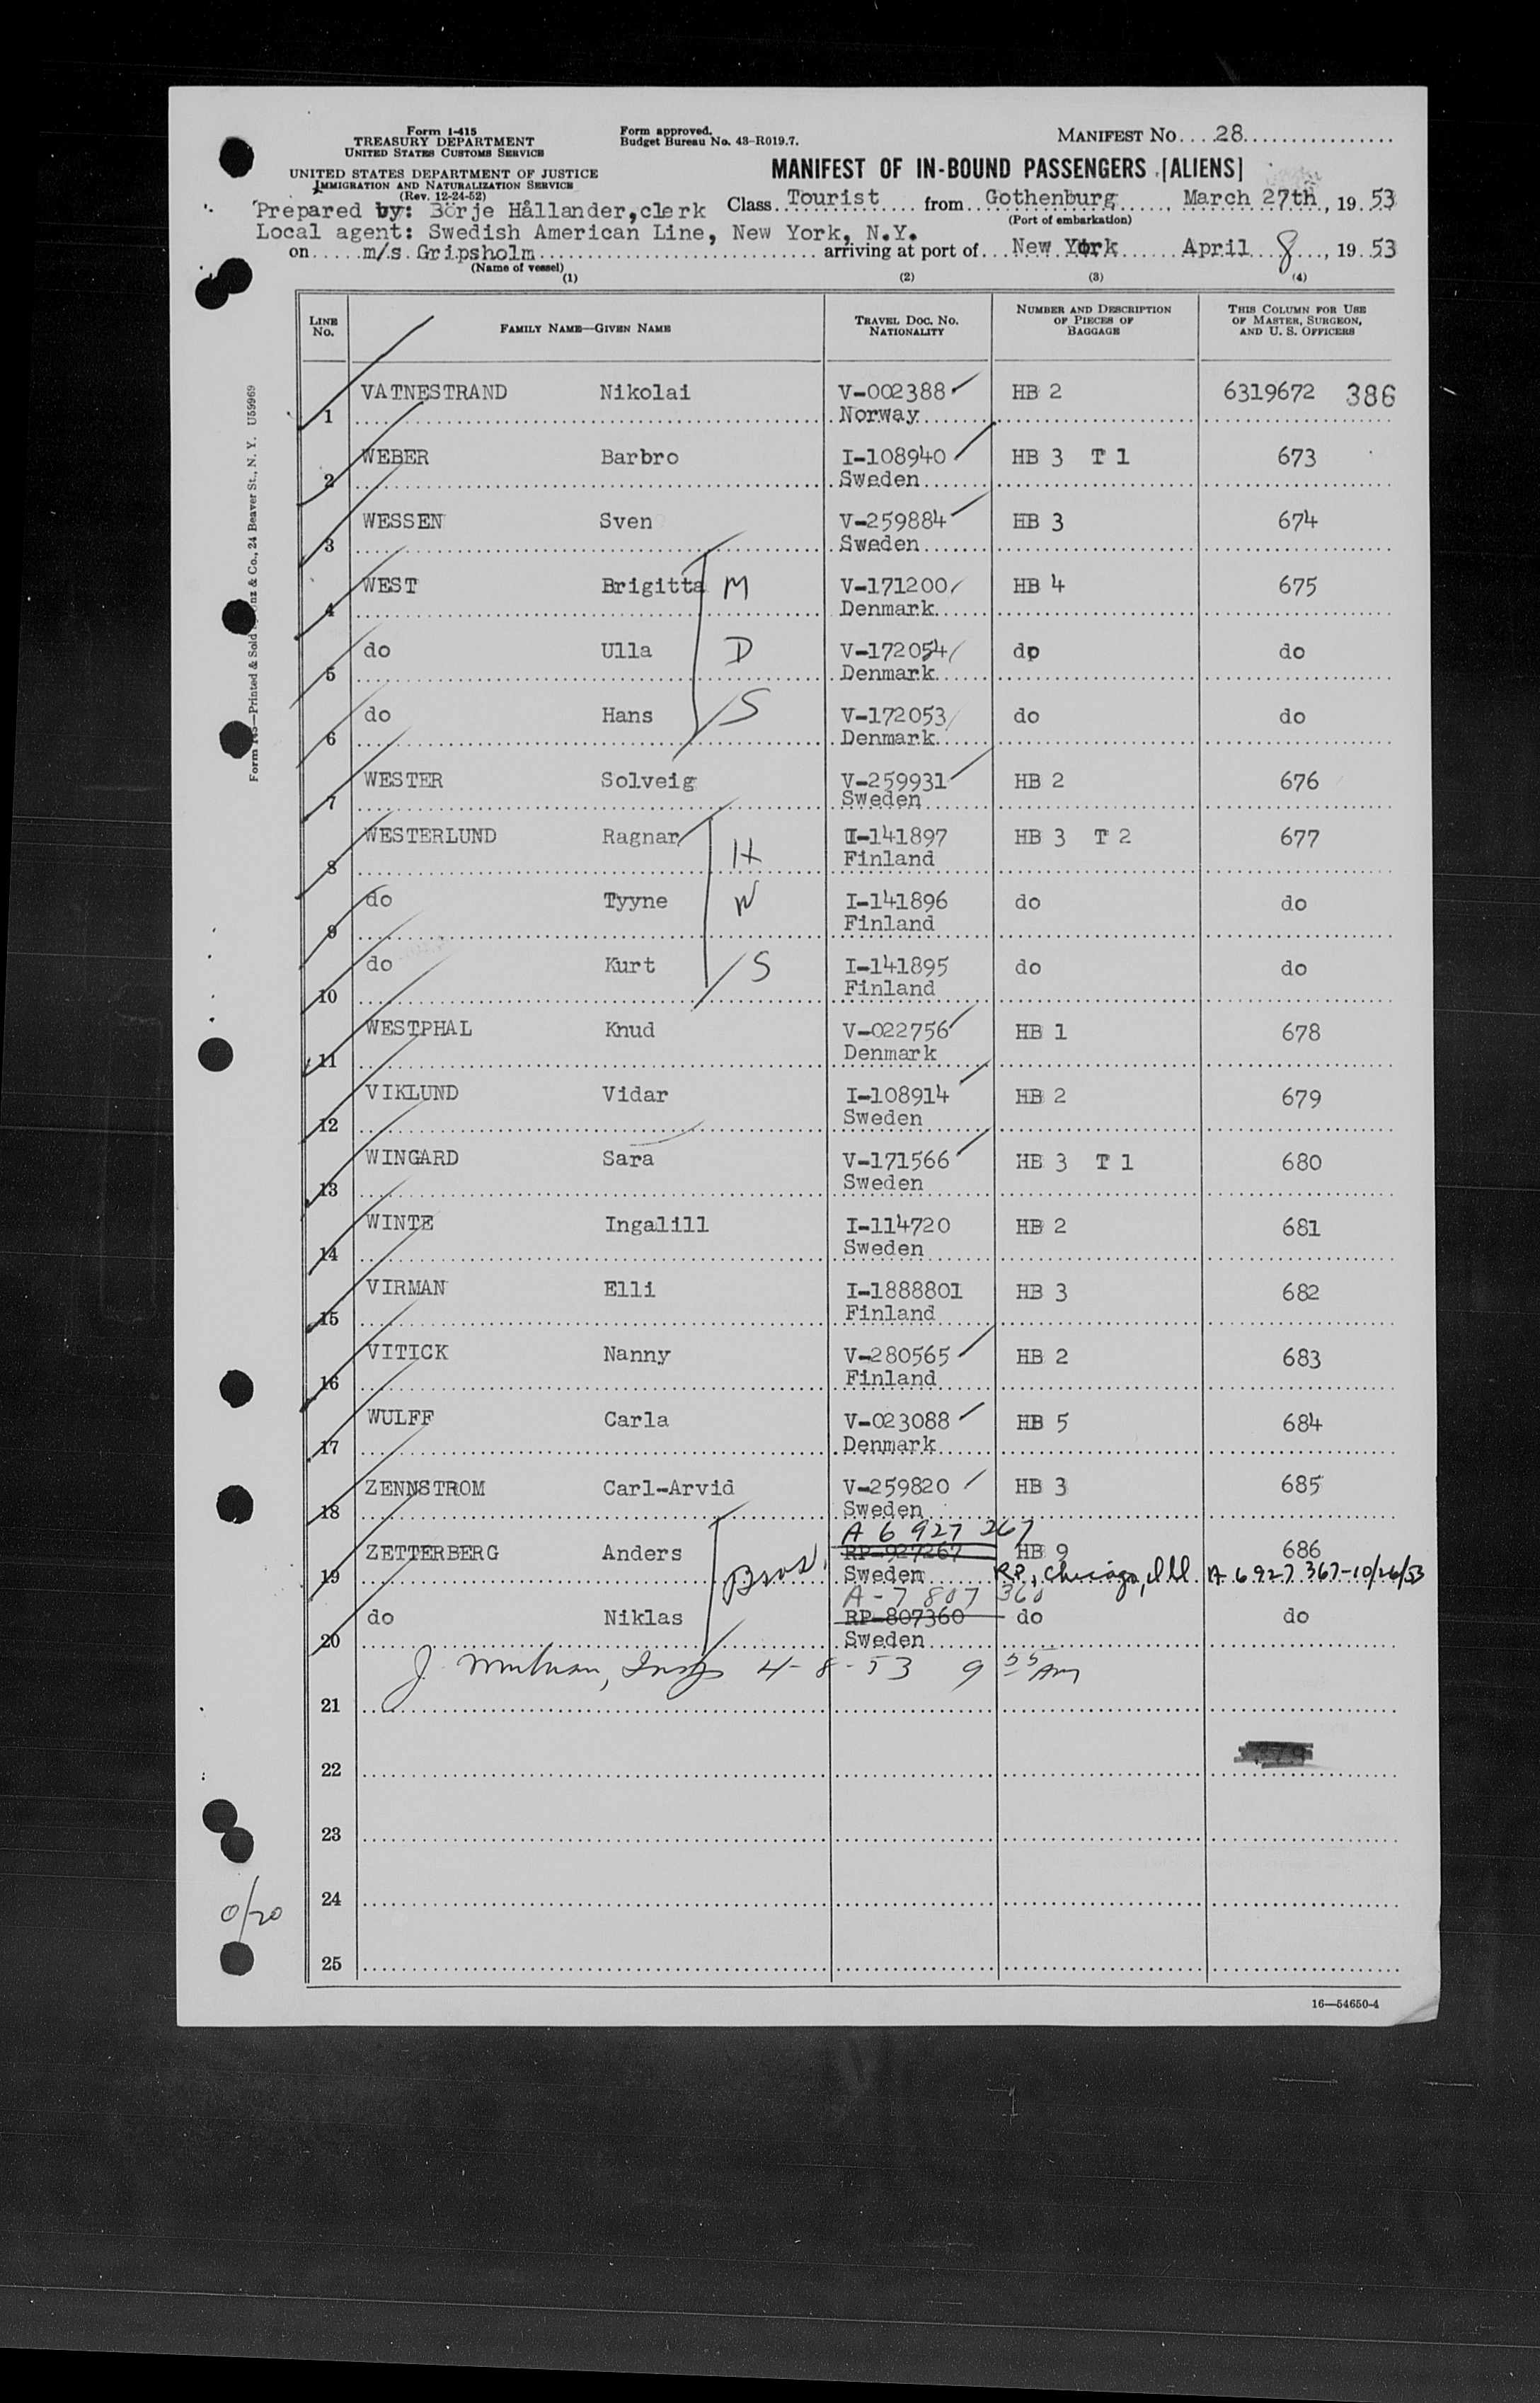 Form I-415
TREASURY DEPARTMENT
UNITED STATES CUSTOMS SERVICE
UNITED STATES DEPARTMENT OF JUSTICE
IMMIGRATION AND NATURALIZATION SERVICE
(Rev. 12-24-52)
Form approved.
Budget Bureau No. 43-R019.7.
MANIFEST NO. 28
MANIFEST OF IN-BOUND PASSENGERS [ALIENS]
Prepared by: Börje Hållander, clerk
Class Tourist from Gothenburg, March 27th, 1953
(Port of embarkation)
Local agent: Swedish American Line, New York, N.Y.
on m/s Gripsholm arriving at port of New York April 8, 1953
(Name of vessel)
(1) (2) (3) (4)
LINE NO. FAMILY NAME—GIVEN NAME TRAVEL DOC. NO. NATIONALITY NUMBER AND DESCRIPTION OF PIECES OF BAGGAGE THIS COLUMN FOR USE OF MASTER, SURGEON, AND U. S. OFFICERS
1 VATNESTRAND Nikolai V-002388 HB 2 6319672 386
Norway
2 WEBER Barbro I-108940 HB 3 T 1 673
Sweden
3 WESSEN Sven V-259884 HB 3 674
Sweden
4 WEST Brigitta M V-171200 HB 4 675
Denmark
5 do Ulla D V-172054 do do
Denmark
6 do Hans S V-172053 do do
Denmark
7 WESTER Solveig V-259931 HB 2 676
Sweden
8 WESTERLUND Ragnar H I-141897 HB 3 T 2 677
Finland
9 do Tyyne W I-141896 do do
Finland
10 do Kurt S I-141895 do do
Finland
11 WESTPHAL Knud V-022756 HB 1 678
Denmark
12 VIKLUND Vidar I-108914 HB 2 679
Sweden
13 WINGARD Sara V-171566 HB 3 T 1 680
Sweden
14 WINTE Ingalill I-114720 HB 2 681
Sweden
15 VIRMAN Elli I-1888801 HB 3 682
Finland
16 VITICK Nanny V-280565 HB 2 683
Finland
17 WULFF Carla V-023088 HB 5 684
Denmark
18 ZENNSTROM Carl-Arvid V-259820 HB 3 685
Sweden
A 6 927 267
19 ZETTERBERG Anders Bros. RP-927267 HB 9 686
Sweden RP, Chicago, Ill. A 6 927 367-10/26/53
A-7 807 360
20 do Niklas RP-807360 do do
Sweden
J. Insp 4-8-53 9 55 AM
21
22
23
24
25
0/20
16—54650-4
Form I-415—Printed & Sold & Co., 24 Beaver St., N. Y. U59969